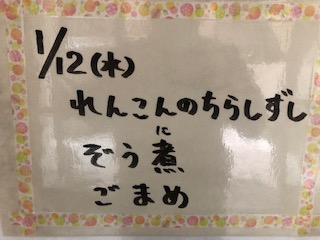 1/12(水)
れんこんのちらしずし
に
ぞう煮
ごまめ